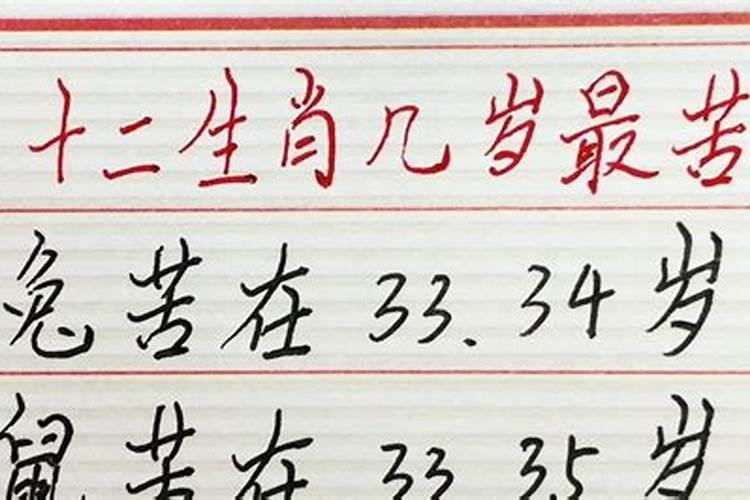 十二生肖几岁最苦
兔苦在33.34岁
鼠苦在33 35岁